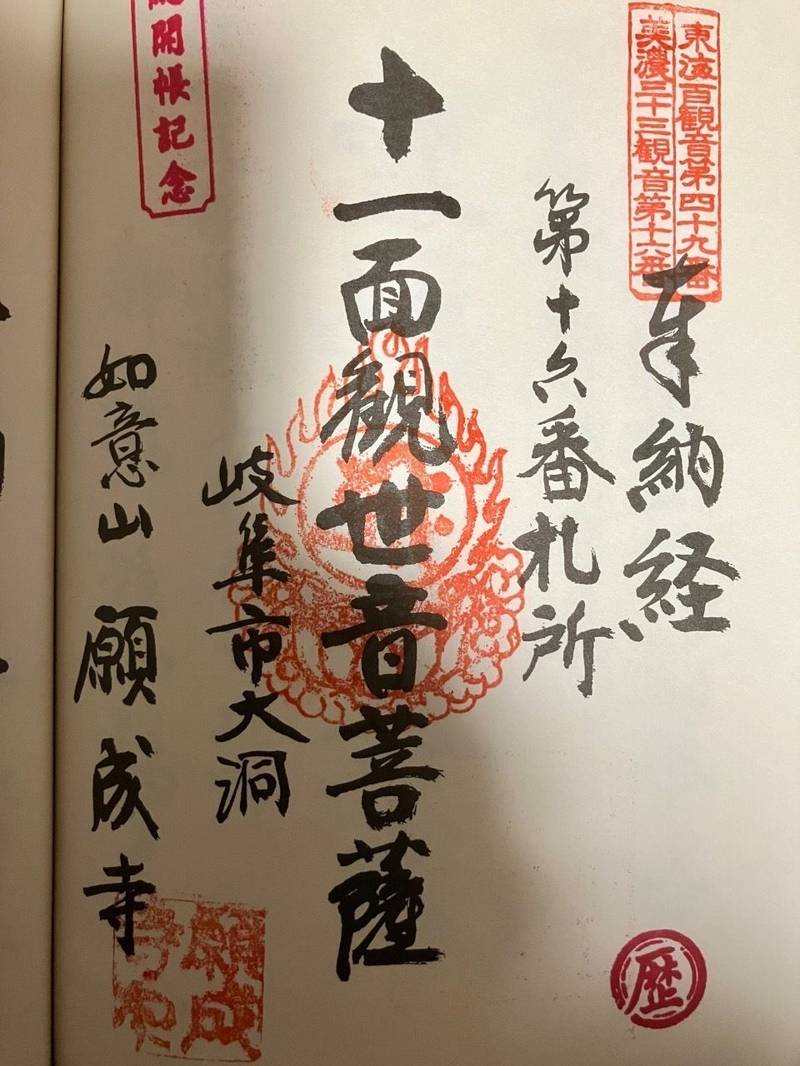 東海百観音第四十九番
美濃三十三観音第十六番
奉納経
第十六番札所
十一面観世音菩薩
岐阜市大洞
開帳記念
如意山 願成寺
歴